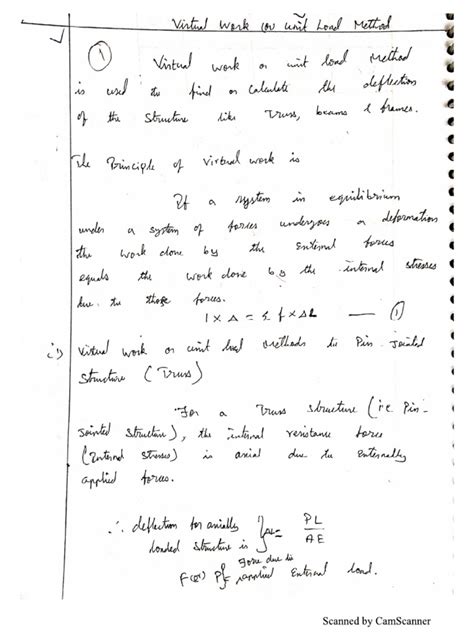 Virtual Work (or) unit Load Method
1
Virtual work or unit load Method
is used to find or Calculate the deflection
of the Structure like Truss, beams & frames.
The Principle of Virtual work is
If a system in equilibrium
under a system of forces undergoes a deformation
the work done by the External forces
equals the work done by the internal stresses
due to those forces.
1 x Δ = Σ f x ΔL — (1)
i) Virtual Work or unit load Methods to Pin Jointed
Structure (Truss)
For a Truss structure (i.e Pin-
Jointed Structure), the internal resistance force
(Internal Stresses) is axial due to Externally
applied forces.
∴ deflection for axially
loaded Structure is } ΔL = PL/AE
Force due to
P applied External load.
Scanned by CamScanner